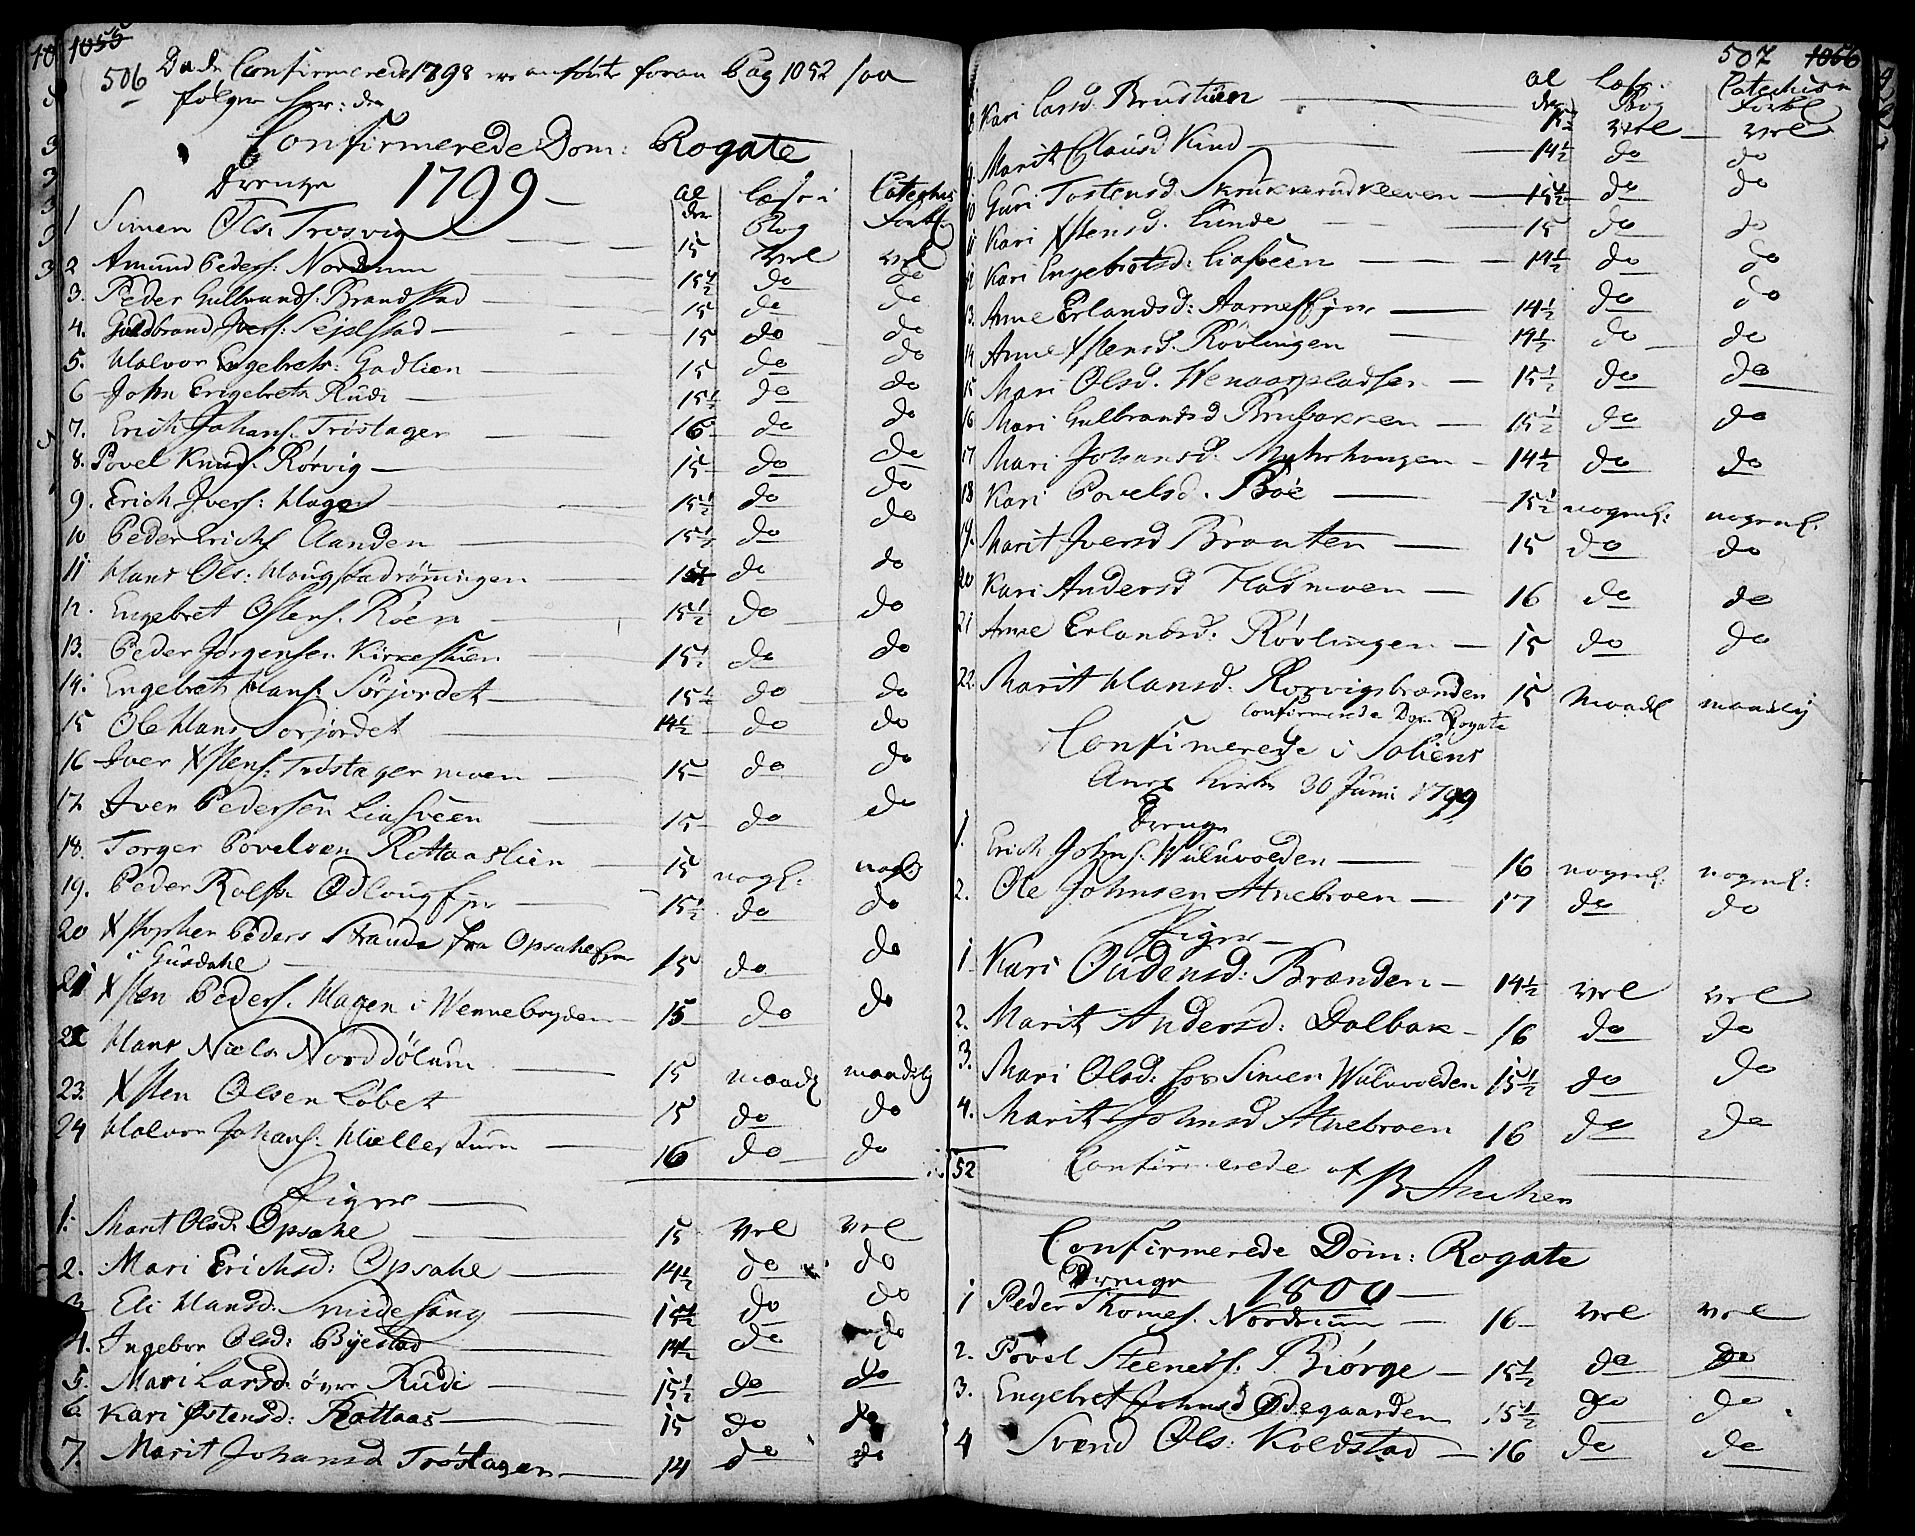 1055
506
Da de Confirmerede 1798 ere anførte foran Pag 1052 saa
følger her: de
Confirmerede Dom: Rogate
Drenge 1799
Al der Læser i Bog Catechis Forkl
1 Simen Ols. Trosvig 15 vel vel
2 Amund Peders: Nordrum 15 1/2 do do
3. Peder Gulbrands: Brandstad 15 do do
4. Guldbrand Ivers: Sejelstad 15 do do
5. Halvor Engebrets: Gadlien 15 do do
6 John Engebrets Rudi 15 1/2 do do
7. Erich Johans. Trøstager 16 do do
8. Povel Knuds. Rørvig 15 do do
9. Erich Ivers: Hagen 15 1/2 do do
10 Peder Erichs Aanden 15 1/2 do do
11 Hans Ols: Hougstadrønningen 15 1/2 do do
12. Engebret Østens. Røen 15 1/2 do do
13. Peder Jørgensen Kirkestuen 15 1/2 do do
14. Engebret Hans. Sørjordet 15 1/2 do do
15 Ole Hans Sørjordet 14 1/2 do do
16 Iver Xstens. Trøstagermoen 15 do do
17. Iver Pedersen Liasveen 15 do do
18. Torger Povelsen Rottaaslien 15 nogl: nogl:
19. Peder Rolfs. Odlougs 15 1/2 do do
20 Xstopher Peders Strande fra Opsahl
i Gusdahl 15 do do
21 Xsten Peders. Hagen i Wennebryden 15 do do
22 Hans Niels Norddølum 15 maadl maadelig
23. Xsten Olsen Løbet 15 do do
24 Halvor Johans: Møllerstuen 16 do do
Piger
1. Marit Olsd. Opsahl 15 vel vel
2. Mari Erichsd: Opsahl 14 1/2 do do
3 Eli Hansd. Smidesang 15 1/2 do do
4. Ingebor Olsd: Byestad 14 1/2 do do
5. Mari Larsd. øvre Rudi 15 1/2 do do
6. Kari Østensd: Rottaas 15 do do
7. Marit Johansd Trøstagen 14 do do
507 1056
Al der Læser Bog Catechism Forkl
8 Kari Larsd. Brustuen 15 1/2 vel vel
9. Marit Clausd Kind 14 1/2 do do
10 Guri Tostensd. Skrukkerudkleeven 15 1/2 do do
11 Kari Xstensd. Lunde 15 do do
12 Kari Engebretsd: Liasveen 14 1/2 do do
13. Anne Erlandsd: Aarnes 14 1/2 do do
14 Anne Xstensd. Røvlingen 14 1/2 do do
15 Mari Olsd. Wenaaspladsen 15 1/2 do do
16 Mari Gulbrandsd Brubakken 15 1/2 do do
17 Mari Johansd. Myhrhougen 14 1/2 do do
18 Kari Povelsd. Boe 15 1/2 nogenl: nogenl:
19. Marit Iversd Braaten 15 do do
20 Kari Andersd Fladmoen 16 do do
21 Anne Erlandsd: Røvlingen 15 do do
22. Marit Hansd. Rørvigsbrænden 15 Maadl maadelig
Confirmerede Dom Rogate
Confirmerede i Soliens
Anex Kirke 30 Juni 1799
Drenge
1. Erich Johns. Wuluvolden 16 nogenl: nogenl:
2. Ole Johnsen Atnebroen 17 do do
Piger
1 Kari Oudensd: Brænden 14 1/2 vel vel
2. Marit Andersd: Dalbak 16 do do
3. Mari Olsd: hos Simen Wuluvolden 15 1/2 do do
4. Marit Johnsd Atnebroen 16 do do
52 Confirmerede af
Confirmerede Dom: Rogate
Drenge 1800
1 Peder Thomes. Nordrum 16 vel vel
2. Povel Steners: Biørge 15 1/2 do do
3. Engebret Johns Ødegaarden 15 1/2 do do
4 Svend Ols: Koldstad 16 do do